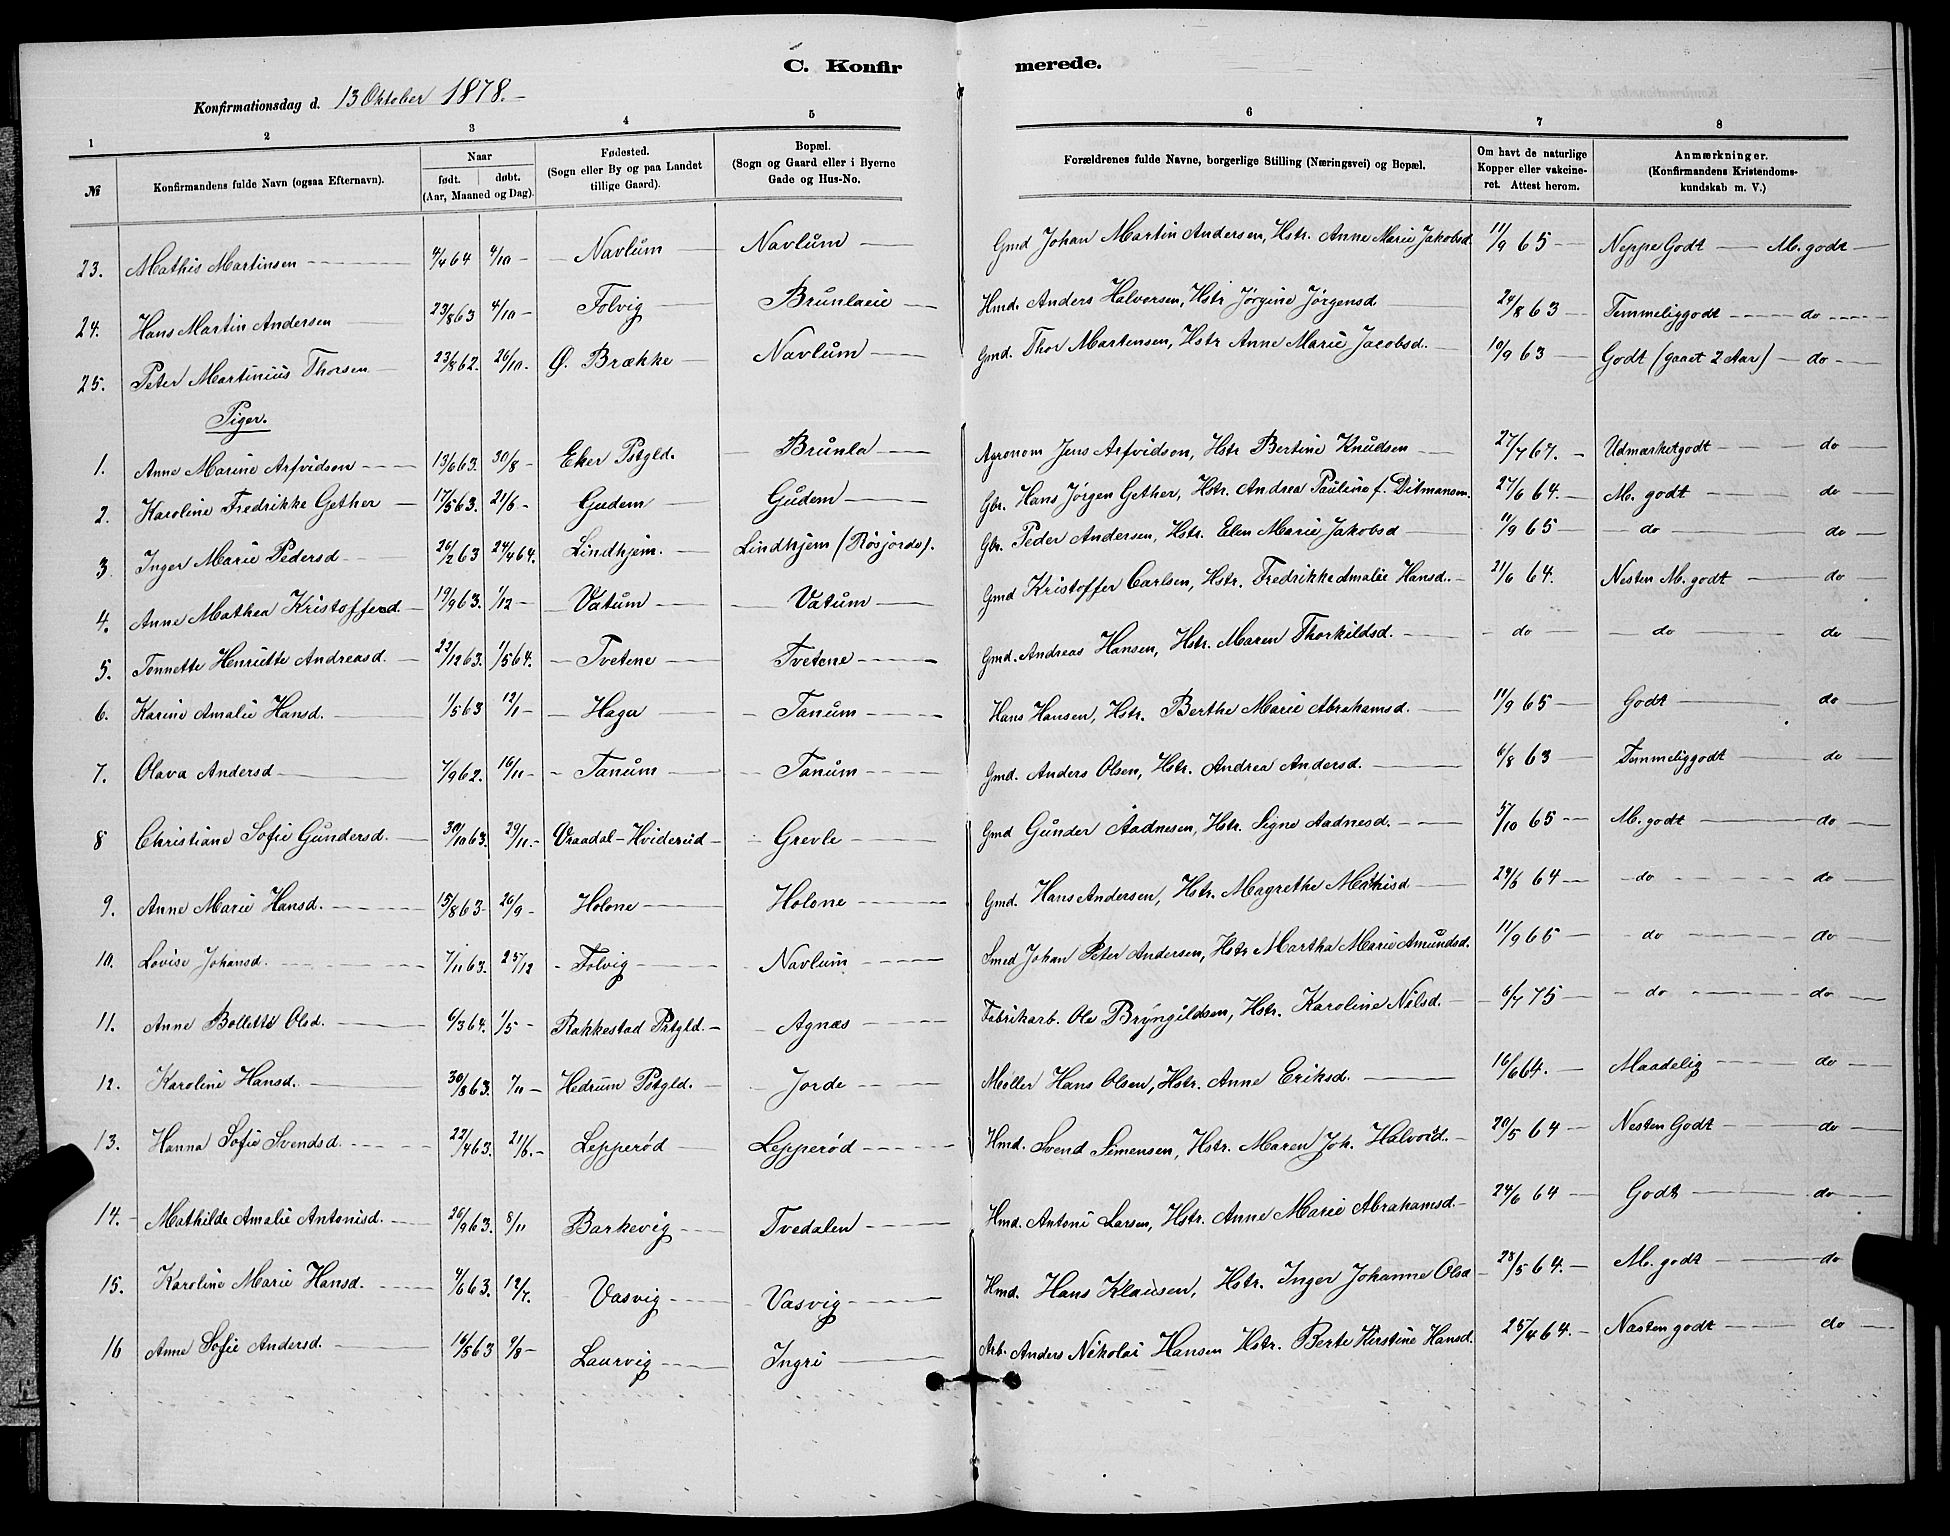 C. Konfirmerede.
Konfirmationsdag d. 13 Oktober 1878.
1 2 3 4 5 6 7 8
№ Konfirmandens fulde Navn (ogsaa Efternavn). Naar født. døbt. (Aar, Maaned og Dag). Fødested. (Sogn eller By og paa Landet tillige Gaard). Bopæl. (Sogn og Gaard eller i Byerne Gade og Hus-No. Forældrenes fulde Navne, borgerlige Stilling (Næringsvei) og Bopæl. Om havt de naturlige Kopper eller vakcineret. Attest herom. Anmærkninger. (Konfirmandens Kristendomskundskab m. V.)
23. Mathis Martinsen 4/4 64 4/10 - Navlum Navlum Gmd Johan Martin Andersen, Hstr. Anne Marie Jakobsd 11/9 65 Neppe Godt M. godt
24. Hans Martin Andersen 23/8 63 4/10 - Folvig Brunlaeie Hmd. Anders Halvorsen, Hstr Jørgine Jørgensd 24/8 63 Temmeliggodt do
25. Peter Martinius Thorsen 23/8 62. 26/10 - Ø. Brække Navlum Gmd. Thor Martensen, Hstr Anne Marie Jacobsd. 10/9 63 Godt (gaaet 2 Aar) do
Piger.
1. Anne Marine Arfvidson 13/6 63. 30/8 - Eker Pstgld. Brunla Agronom Jens Arfvidson, Hstr Bertine Knudsen 27/7 67. Udmærketgodt do
2. Karoline Fredrikke Gether 17/5 63. 21/6 - Gudem Gudem Gbr. Hans Jørgen Gether, Hstr. Andrea Pauline f. Ditmansen. 27/6 64. M. godt do
3 Inger Marie Pedersd 26/2 63 24/4 64. Lindhjem. Lindhjem (Røsjorde). Gbr. Peder Andersen, Hstr. Elen Marie Jakobsd 11/9 65 do do
4. Anne Mathea Kristoffersd. 19/9 63. 1/12 - Vatum Vatum Gmd Kristoffer Carlsen, Hstr. Fredrikke Amalie Hansd. 21/6 64. Nesten M. godt do
5. Tonnette Henriette Andreasd. 22/12 63. 1/5 64. Tvetene Tvetene Gmd. Andreas Hansen, Hstr. Maren Thorkildsd. do do do
6. Karine Amalie Hansd. 1/5 63 12/1 - Haga Tanum Hans Hansen, Hstr. Berthe Marie Abrahamsd. 11/9 65 Godt do
7. Olava Andersd 7/9 62. 16/11 - Tanum Tanum Gmd. Anders Olsen, Hstr. Andrea Andersd. 6/8 63 Temmeliggodt do
8 Christiane Sofie Gundersd. 30/10 63. 29/11. - Vraadal-Hviderud Grevle Gmd Gunder Aadnesen, Hstr. Signe Aadnesd. 5/10 65 M. godt do
9. Anne Marie Hansd. 15/8 63 26/9 - Holone Holone Gmd. Hans Andersen, Hstr. Magrethe Mathisd 24/6 64 do do
10. Lovise Johansd. 7/11 63. 25/12 - Folvig Navlum Smed Johan Peter Andersen, Hstr Martha Marie Amundsd. 11/9 65 do do
11. Anne Bollette Olsd. 6/3 64. 1/5 - Rakkestad Pstgld. Agnæs Fabrikarb. Ole Bryngildsen, Hstr. Karoline Nilsd. 6/7 75 do do
12. Karoline Hansd. 30/8 63. 7/11 - Hedrum Pstgld. Jorde Møller Hans Olsen, Hstr. Anne Eriksd. 16/6 64. Maadelig do
13. Hanna Sofie Svendsd. 22/4 63. 21/6. - Lepperød Lepperød Hmd. Svend Simensen, Hstr. Maren Joh. Halvorsd. 20/5 64 Nesten Godt do
14. Mathilde Amalie Antonisd. 26/9 63. 8/11 Barkevig Tvedalen Hmd. Antoni Larsen, Hstr. Anne Marie Abrahamsd. 24/6 64 Godt do
15. Karoline Marie Hansd. 4/6 63. 12/7. Vasvig Vasvig Hmd. Hans Klausen, Hstr. Inger Johanne Olsd 28/5 64. M. godt do
16 Anne Sofie Andersd. 14/5 63 9/8 - Laurvig Ingri Arb. Anders Nikolai Hansen Hstr. Berte Kirstine Hansd. 25/4 64. Næsten godt do